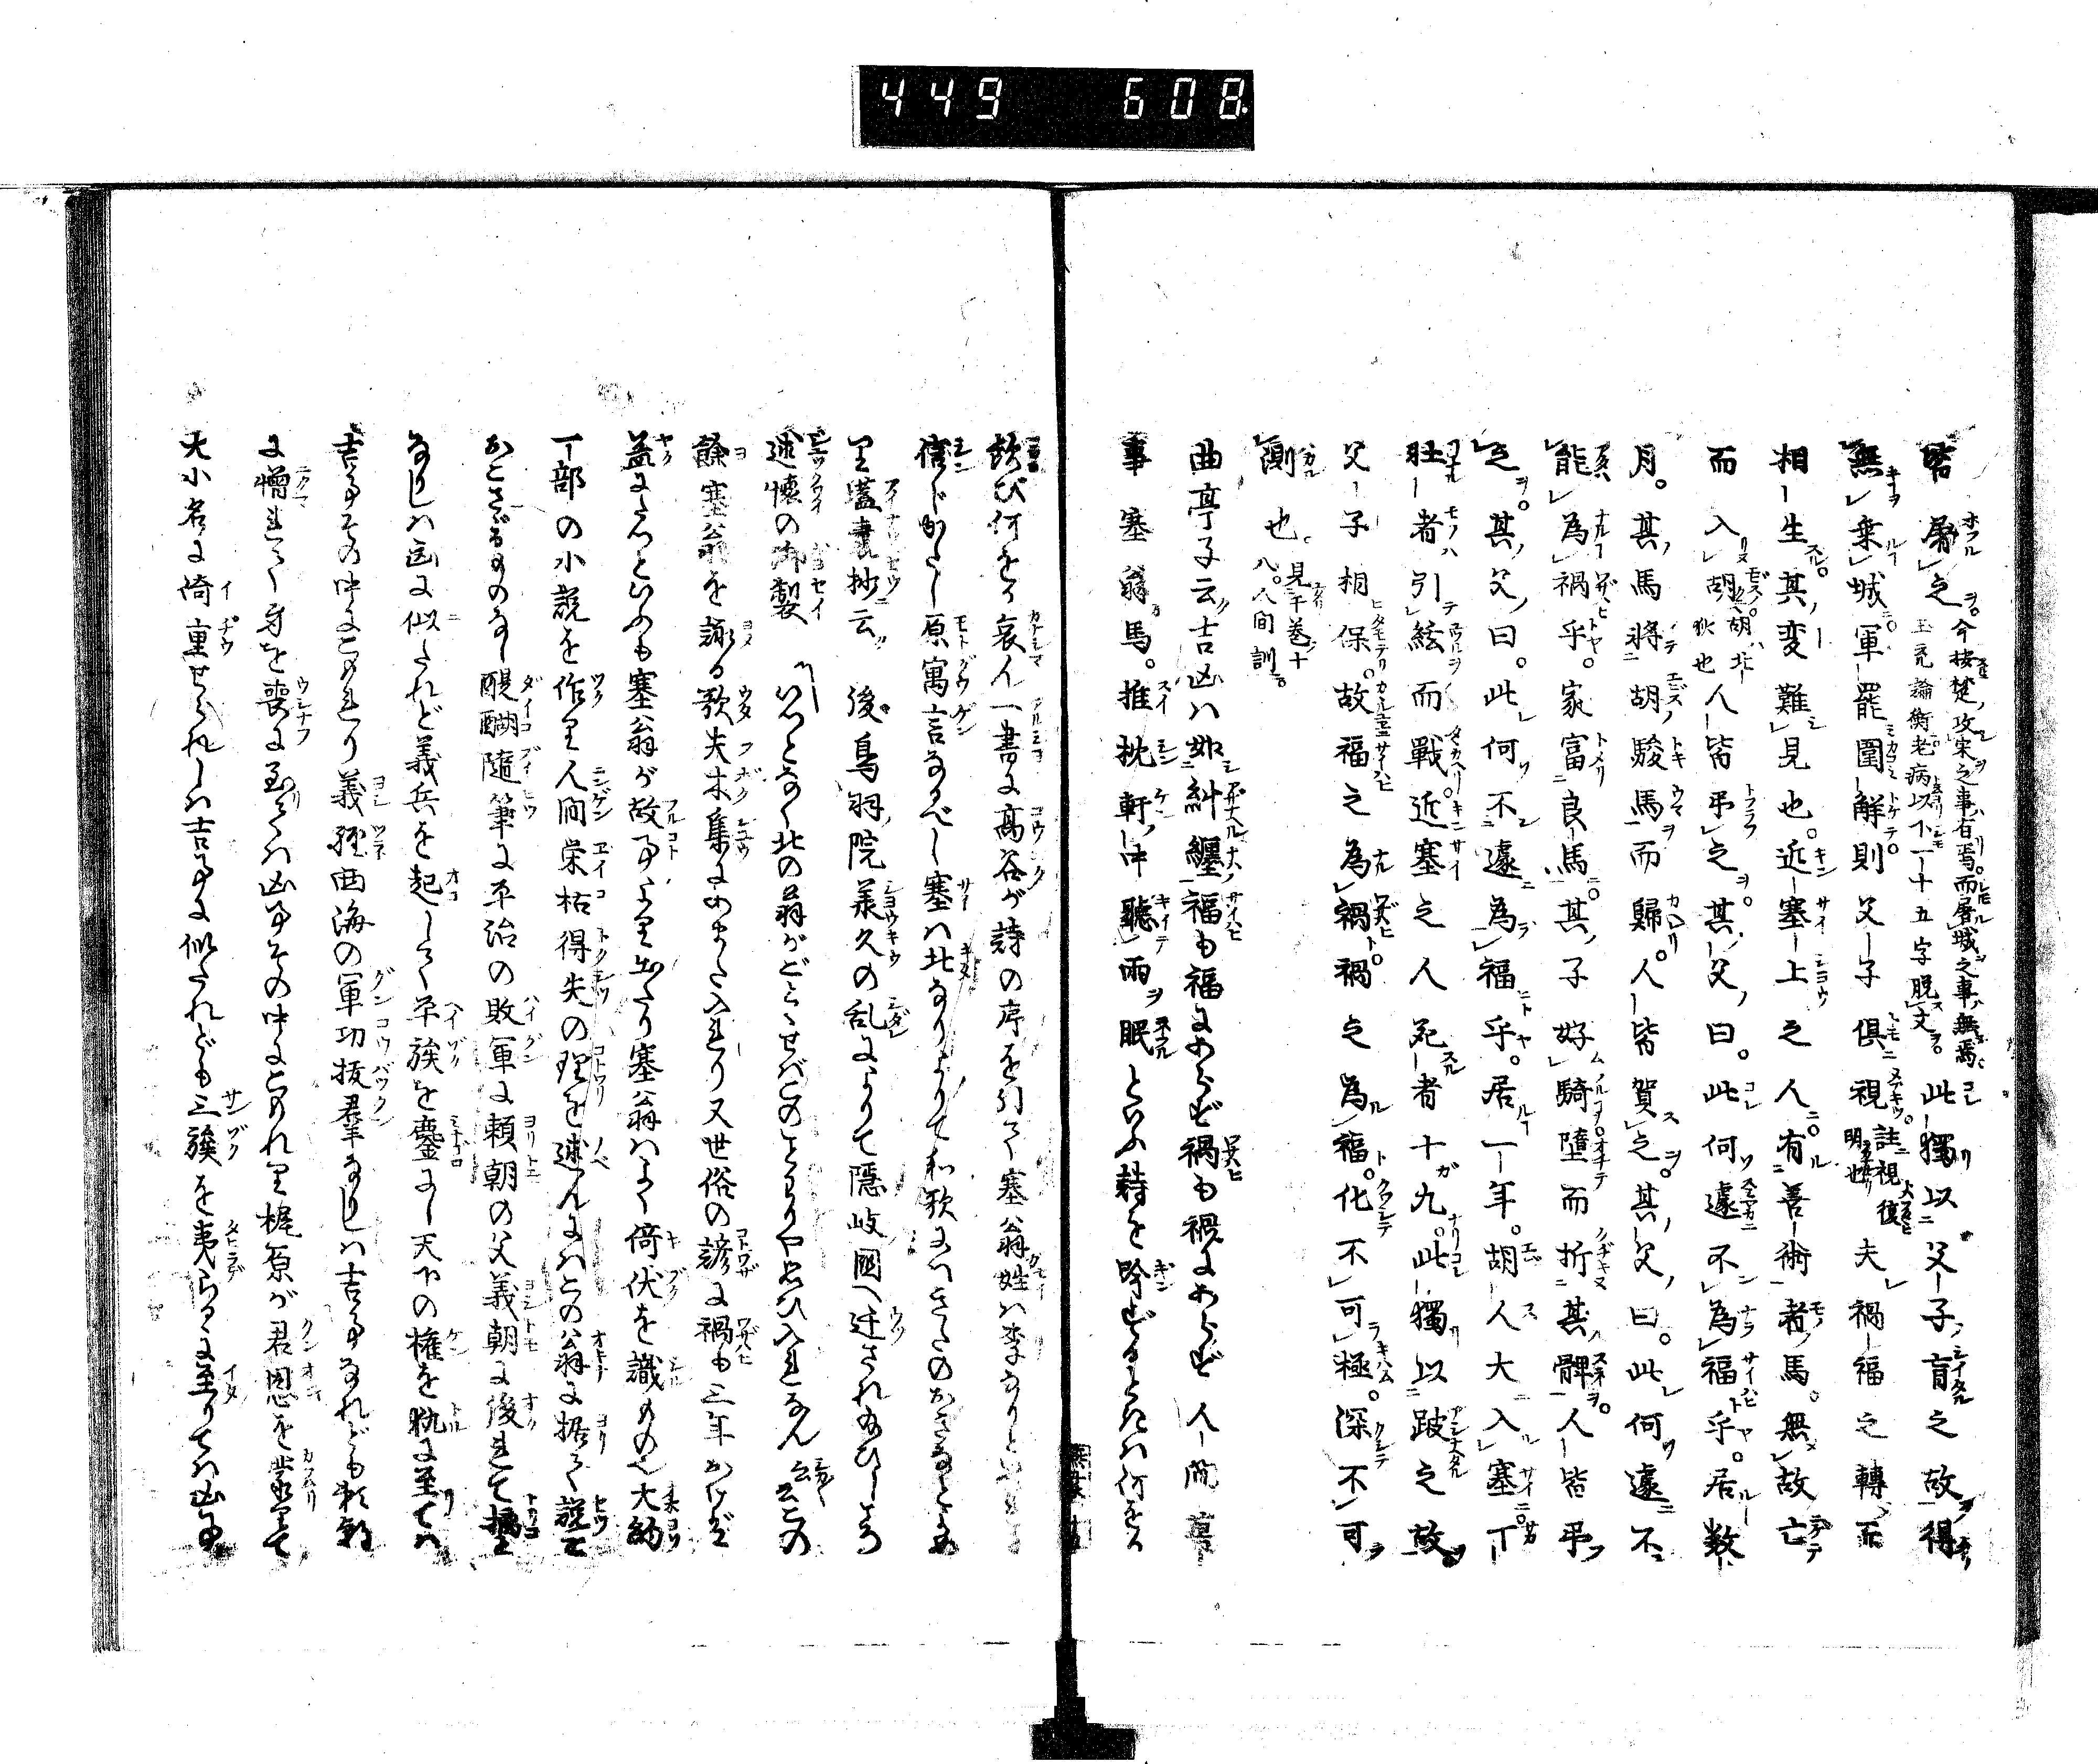 449 608
皆屠之。今按楚攻宋之事有焉。而屠城之事無焉 王充論衡老病以下一十五字脱文 此獨以父子盲之故得
無乗城軍罷圍解則父子倶視 註視復明也 夫禍福之轉而
相生其変難見也。近塞上之人有善術者馬。無故亡
而入胡 胡ハ北狄也 人皆弔之。其父曰。此何遽不為福乎。居数
月。其馬将胡駿馬而歸。人皆賀之。其父曰。此何遽不
能為禍乎。家富良馬其子好騎墮而折其髀人皆弔
之。其父曰。此何不遽為福乎。居一年。胡人大入塞丁
壮者引絃而戰近塞之人死者十九。此獨以跛之故
父子相保。故福之為禍。禍之為福。化不可極。深不可
測也。見于巻十八。人間訓
曲亭子云吉凶ハ如糾纏福も福にあらず禍も禍にあらず人間萬
事塞翁馬。推枕軒中聽雨眠といふ詩を吟ずるときハ何をか
歓び何をか哀ん一書に高谷が詩の序を引て塞翁姓ハ李なりといへ
信じがたし原寓言なるべし塞ハ北なりよりて和歌にハきたのおきなとよめ
り壒嚢抄云後鳥羽院承久の乱によりて隠岐國へ迁されひしころ
述懐の御製 いつとなく北の翁がごとくせばこのことわりや思ひ入れなん 云云この
餘塞翁を詠る歌夫木集にあまた入れり又世俗の諺に禍も三年おけば
益にたつといふも塞翁が故事より出たり塞翁ハよく倚伏を識るもの也大納
丁部の小説を作り人間栄枯得失の理を述んにハこの翁に據て説こ
おこさゞるものなし醍醐隨筆に平治の敗軍に頼朝の父義朝に後れて擒
なりしハ凶に似たれど義兵を起して平族を鏖にし天下の權を執に至てハ
吉事その中にこめれり義経西海の軍功抜羣なりしハ吉事なれども頼朝
に憎れて身を喪に到てハ凶事その中にこめれり梶原が君恩を蒙て
大小名に倚重せられしハ吉事に似たれども三族を夷らるに至りてハ凶事